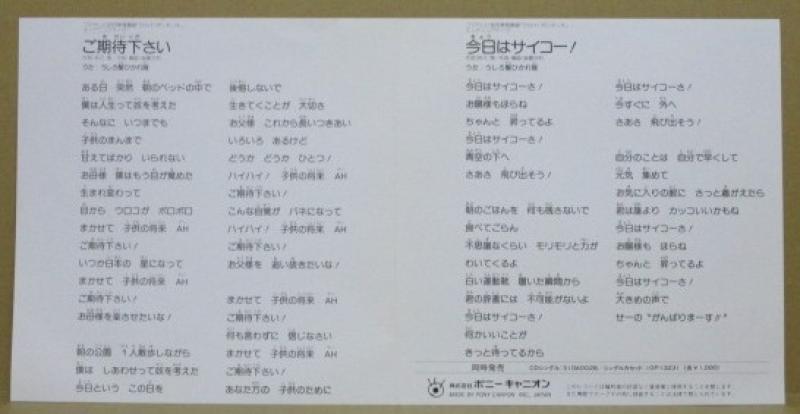 ご期待下さい
うた　うしろ髪ひかれ隊
ある日　突然　朝のベッドの中で
僕は人生って奴を考えた
そんなに　いつまでも
子供のまんまで
甘えてばかり　いられない
お母様　僕はもう目が覚めた
生まれ変わって
目から　ウロコが　ポロポロ
まかせて　子供の将来　AH
ご期待下さい！
いつか日本の　星になって
まかせて　子供の将来　AH
ご期待下さい！
お母様を楽させたいな！
朝の公園　1人散歩しながら
僕は　しあわせって奴を考えた
今日という　この日を
後悔しないで
生きてくことが　大切さ
お父様　これから長いつきあい
いろいろ　あるけど
どうか　どうか　ひとつ！
ハイハイ！　子供の将来　AH
ご期待下さい！
こんな自覚が　バネになって
ハイハイ！　子供の将来　AH
ご期待下さい！
お父様を　追い抜きたいな！
まかせて　子供の将来　AH
ご期待下さい！
何も言わずに　信じなさい
まかせて　子供の将来　AH
ご期待下さい！
あなた方の　子供のために
今日はサイコー！
うた　うしろ髪ひかれ隊
今日はサイコーさ！
お陽様もほらね
ちゃんと　昇ってるよ
今日はサイコーさ！
青空の下へ
さあさ　飛び出そう！
朝のごはんを　何も残さないで
食べてごらん
不思議なくらい　モリモリと力が
わいてくるよ
白い運動靴　履いた瞬間から
君の辞書には　不可能がないよ
今日はサイコーさ！
何かいいことが
きっと待ってるから
今日はサイコーさ！
今すぐに　外へ
さあさ　飛び出そう！
自分のことは　自分で早くして
元気　集めて
お気に入りの服に　さっと着がえたら
君は誰より　カッコいいかもね
今日はサイコーさ！
お陽様も　ほらね
ちゃんと　昇ってるよ
今日はサイコーさ！
大きめの声で
せーの“がんばりまーす!!”
同時発売
株式会社 ポニーキャニオン
MADE BY PONY CANYON INC., JAPAN